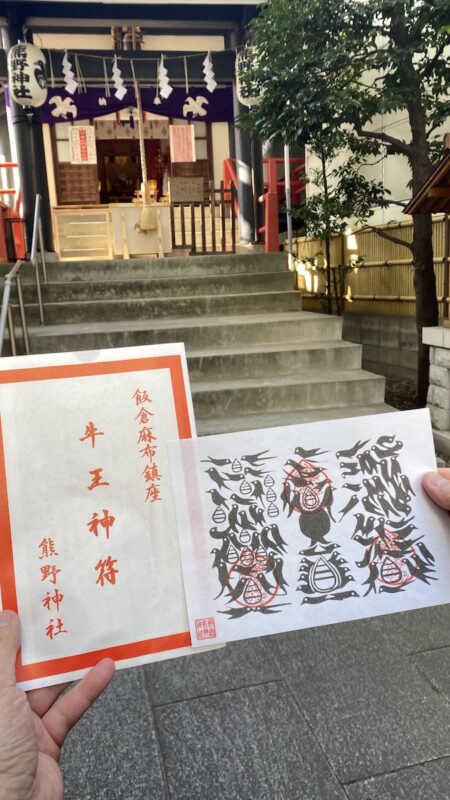 熊野神社
飯倉麻布鎮座
牛王神符
熊野神社